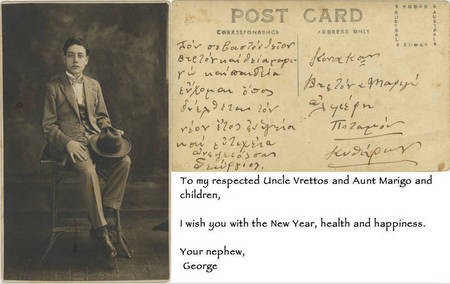 POST CARD
CORRESPONDENCE
ADDRESS ONLY
KODAK
AUSTRAL
Τον σεβαστόν θείον
Βρετόν και θεία μαρι
γώ και παιδία
εύχομαι όπος
τον
νέον έτος εν υγεία
και ευτυχεία
ανεψιός σας
Γεώργιος.
Βρετόν
Ποταμόν
Κυθήρων
To my respected Uncle Vrettos and Aunt Marigo and
children,
I wish you with the New Year, health and happiness.
Your nephew,
George